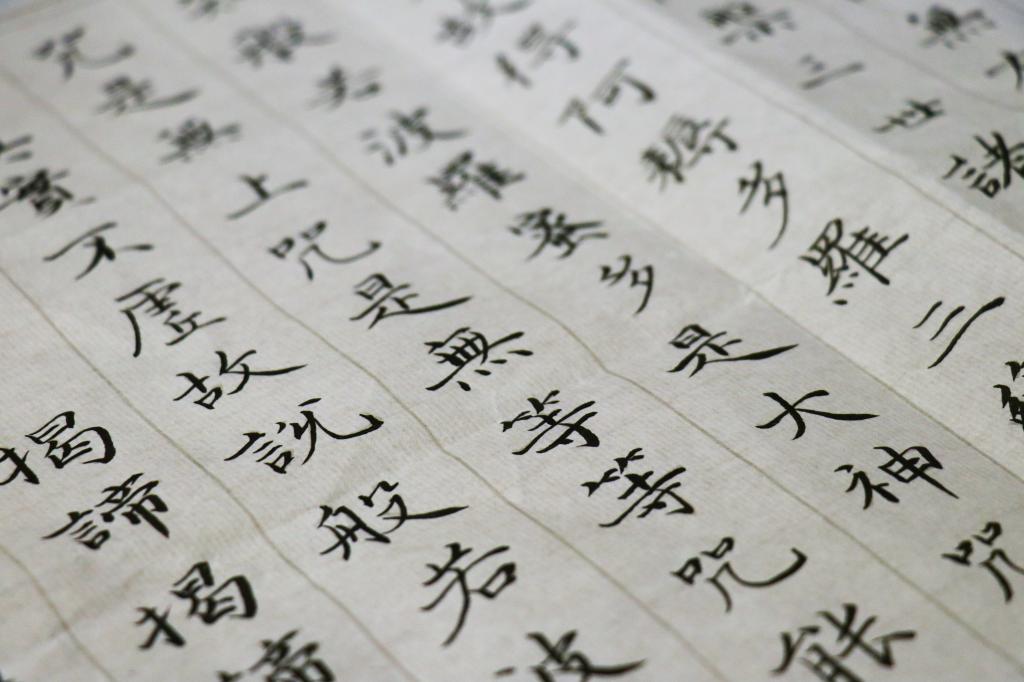 無
槃三世諸
故得阿耨多羅三
般若波羅蜜多是大神咒
咒是無上咒是無等等咒能
實不虛故說般若波
揭諦揭諦